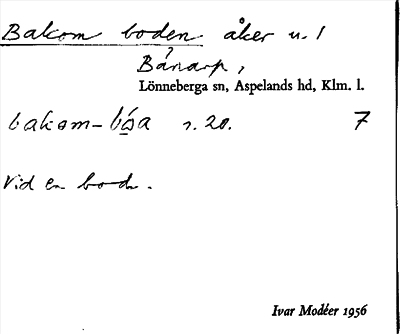 Bakom boden åker u. 1
Bånarp,
Lönneberga sn, Aspelands hd, Klm. l.
bakom-bóa r. 20. 7
Vid en bod.
Ivar Modéer 1956